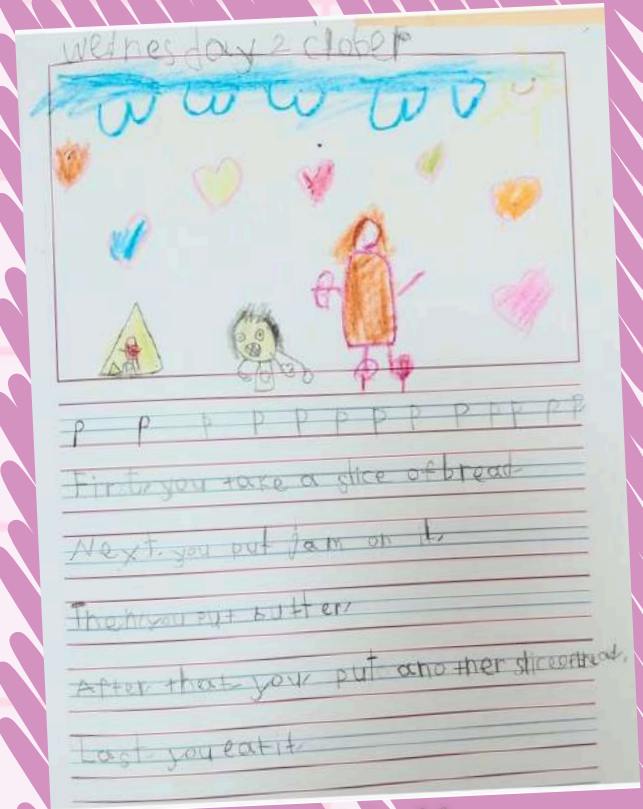 Wednesday 2 ctober
p p p p p p p p p p p p p
First, you take a slice of bread
Next, you put jam on it,
Then you put butter,
After that you put another slice of bread.
Last you eat it